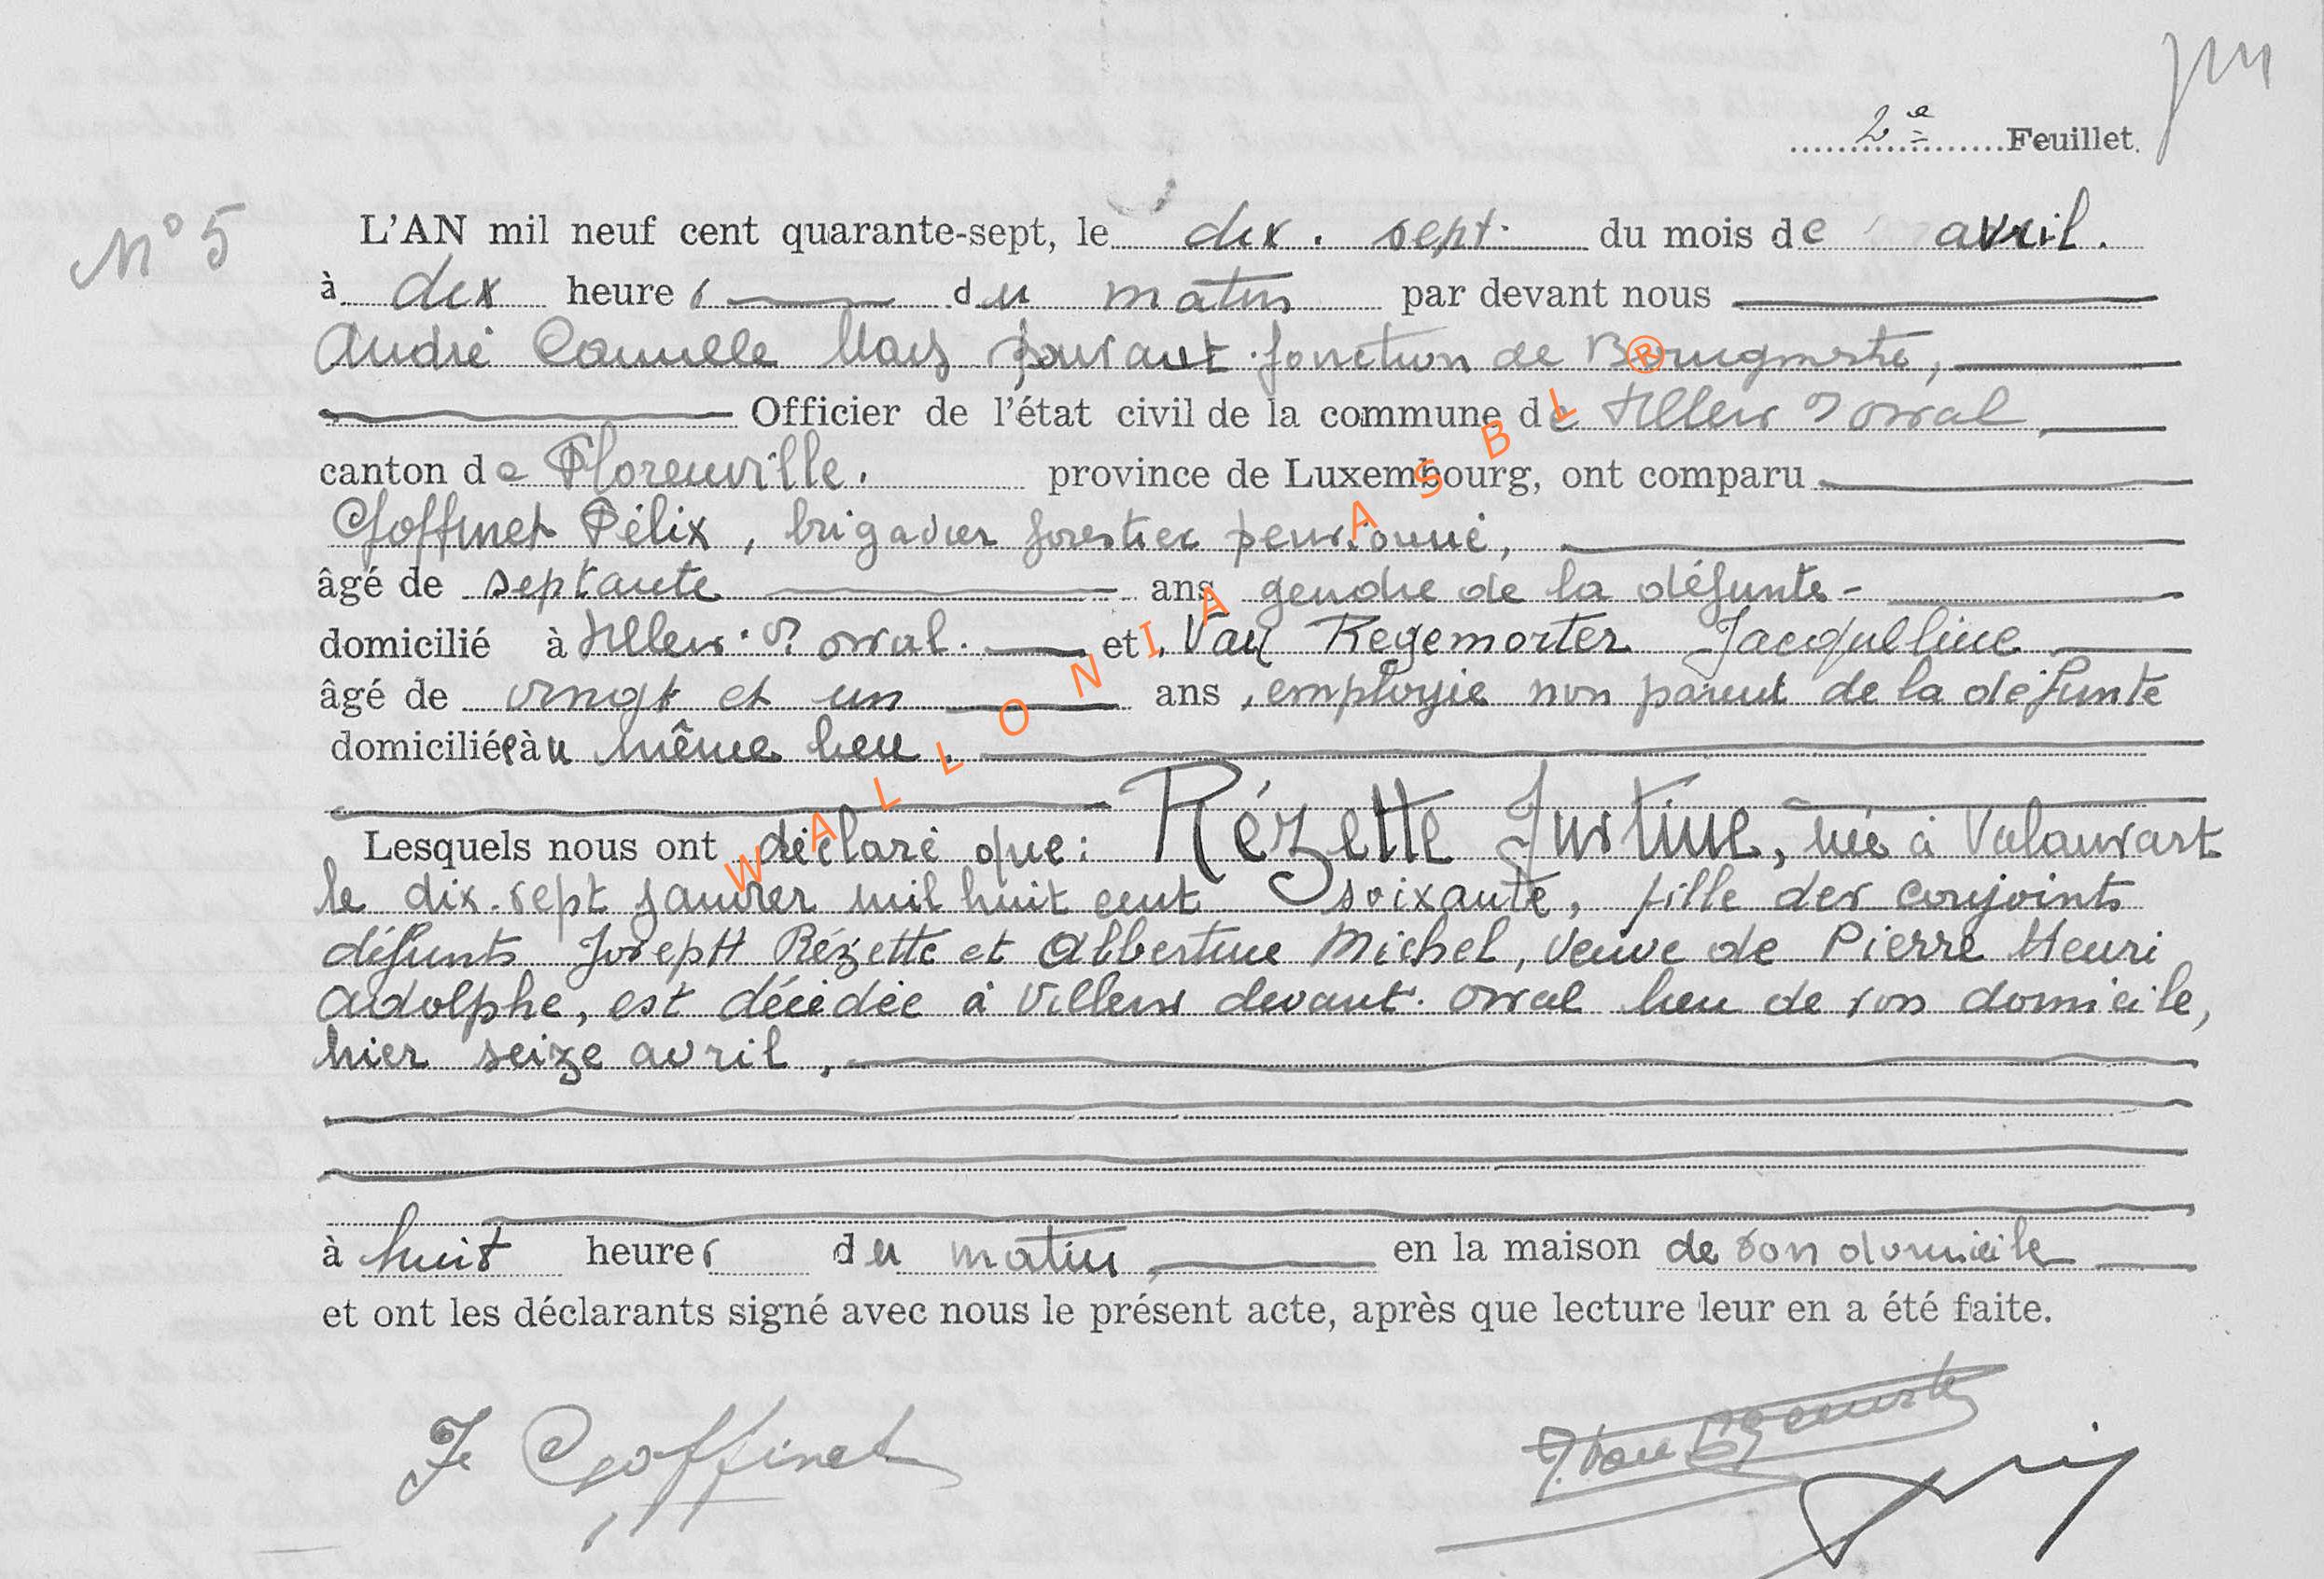 2e Feuillet.
N° 5
L'AN mil neuf cent quarante-sept, le dix. sept. du mois de avril.
à dix heures du matin par devant nous
André Camille faisant fonction de Bourgmestre,
Officier de l'état civil de la commune de Villers Dt orval,
canton de Florenville. province de Luxembourg, ont comparu
Goffinet Félix, brigadier forestier pensionné,
âgé de septante ans gendre de la défunte -
domicilié à Villers. Dt orval. et Van Regemorter Jacqueline
âgé de vingt et un ans, employée non parent de la défunte
domiciliée au même lieu.
Lesquels nous ont déclaré que: Rézette Justine, née à Valansart
le dix-sept janvier mil huit cent soixante, fille des conjoints
défunts Joseph Rézette et Albertine Michel, veuve de Pierre Henri
Adolphe, est décédée à Villers devant. orval lieu de son domicile,
hier seize avril,
à huit heures du matin, en la maison de son domicile
et ont les déclarants signé avec nous le présent acte, après que lecture leur en a été faite.
F Goffinet
WALLONIA ASBL ®